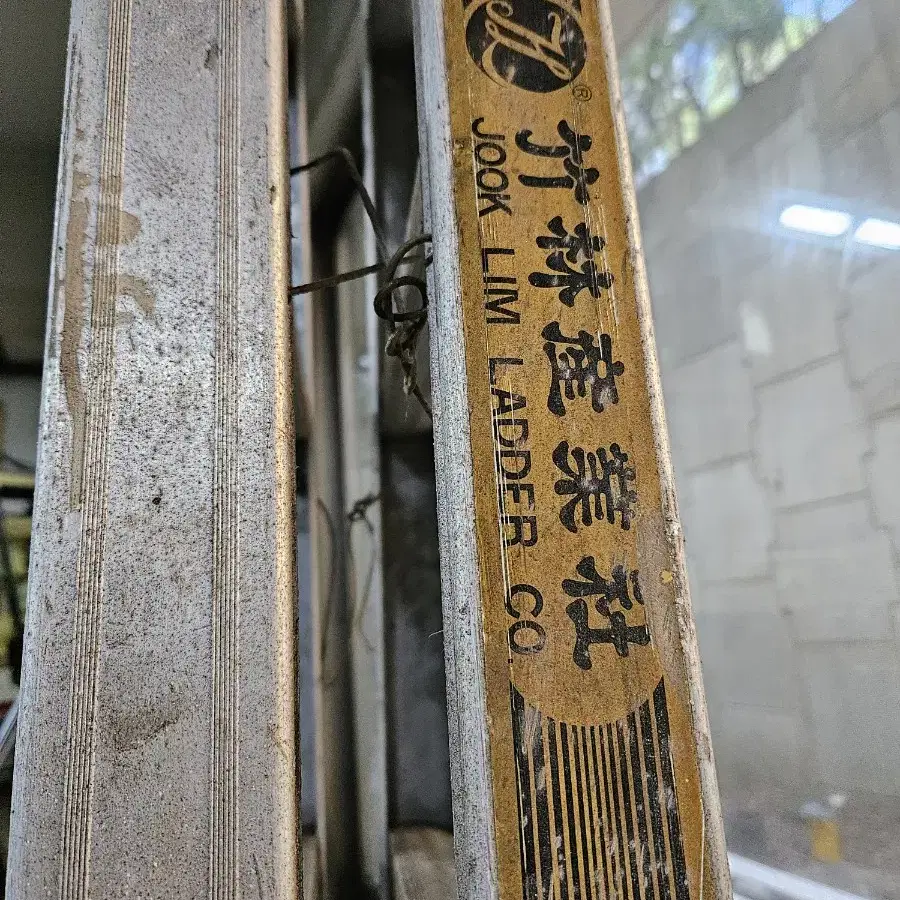 ®
竹林産業社
JOOK LIM LADDER CO.